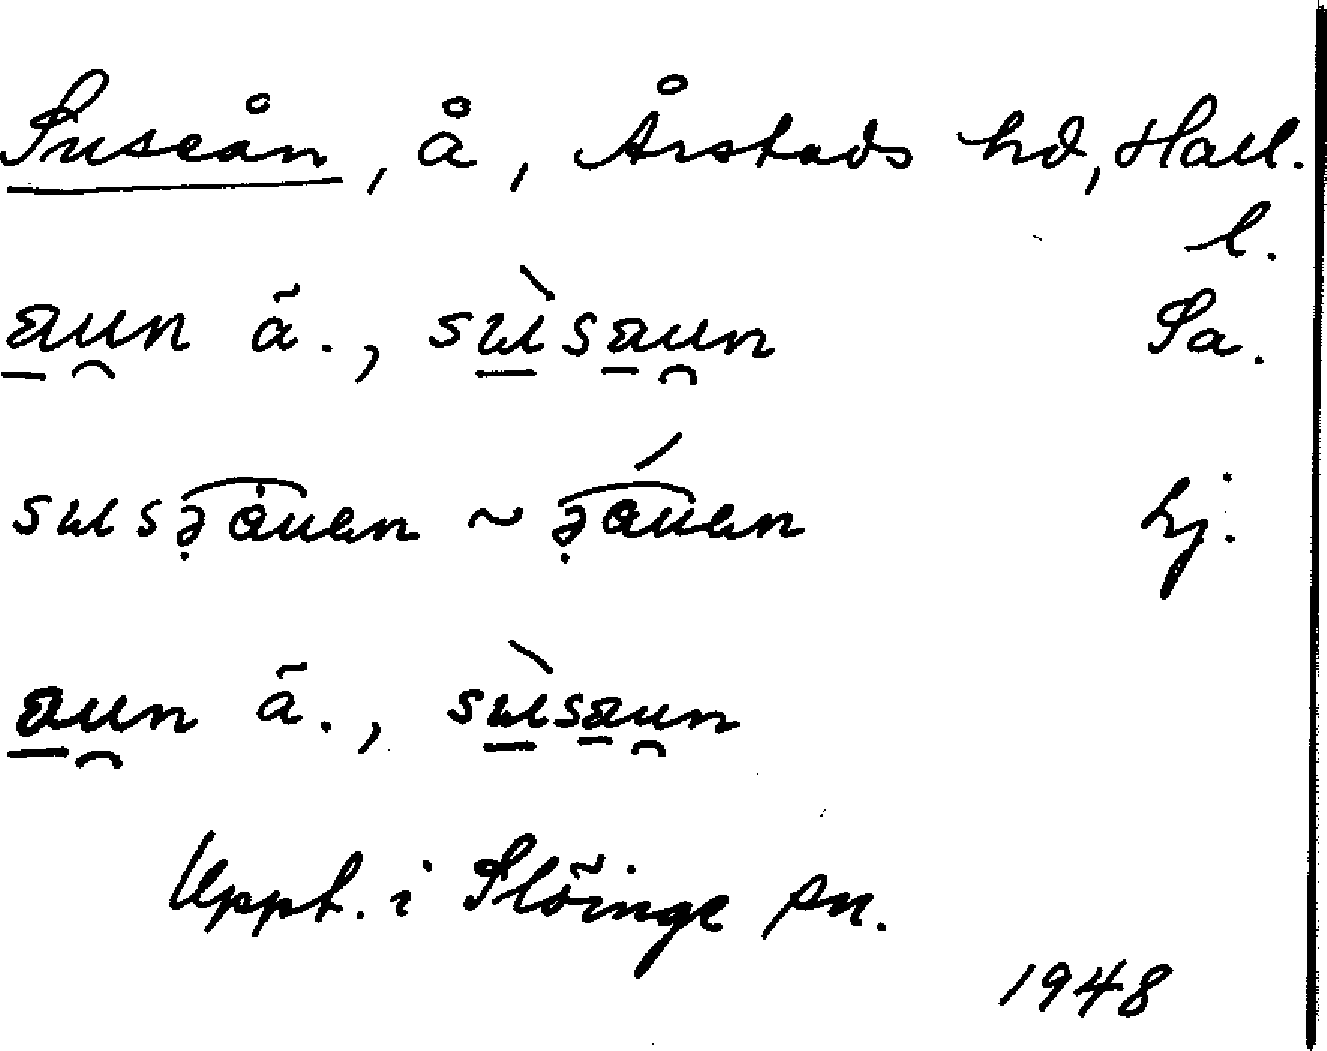 Suseån, å, Årstads hd, Hall.
l.
aun ā., sùsaun Sa.
susəȧuen ~ əáuen hj.
aun ā., sùsaun
Uppt. i Slöinge sn.
1948